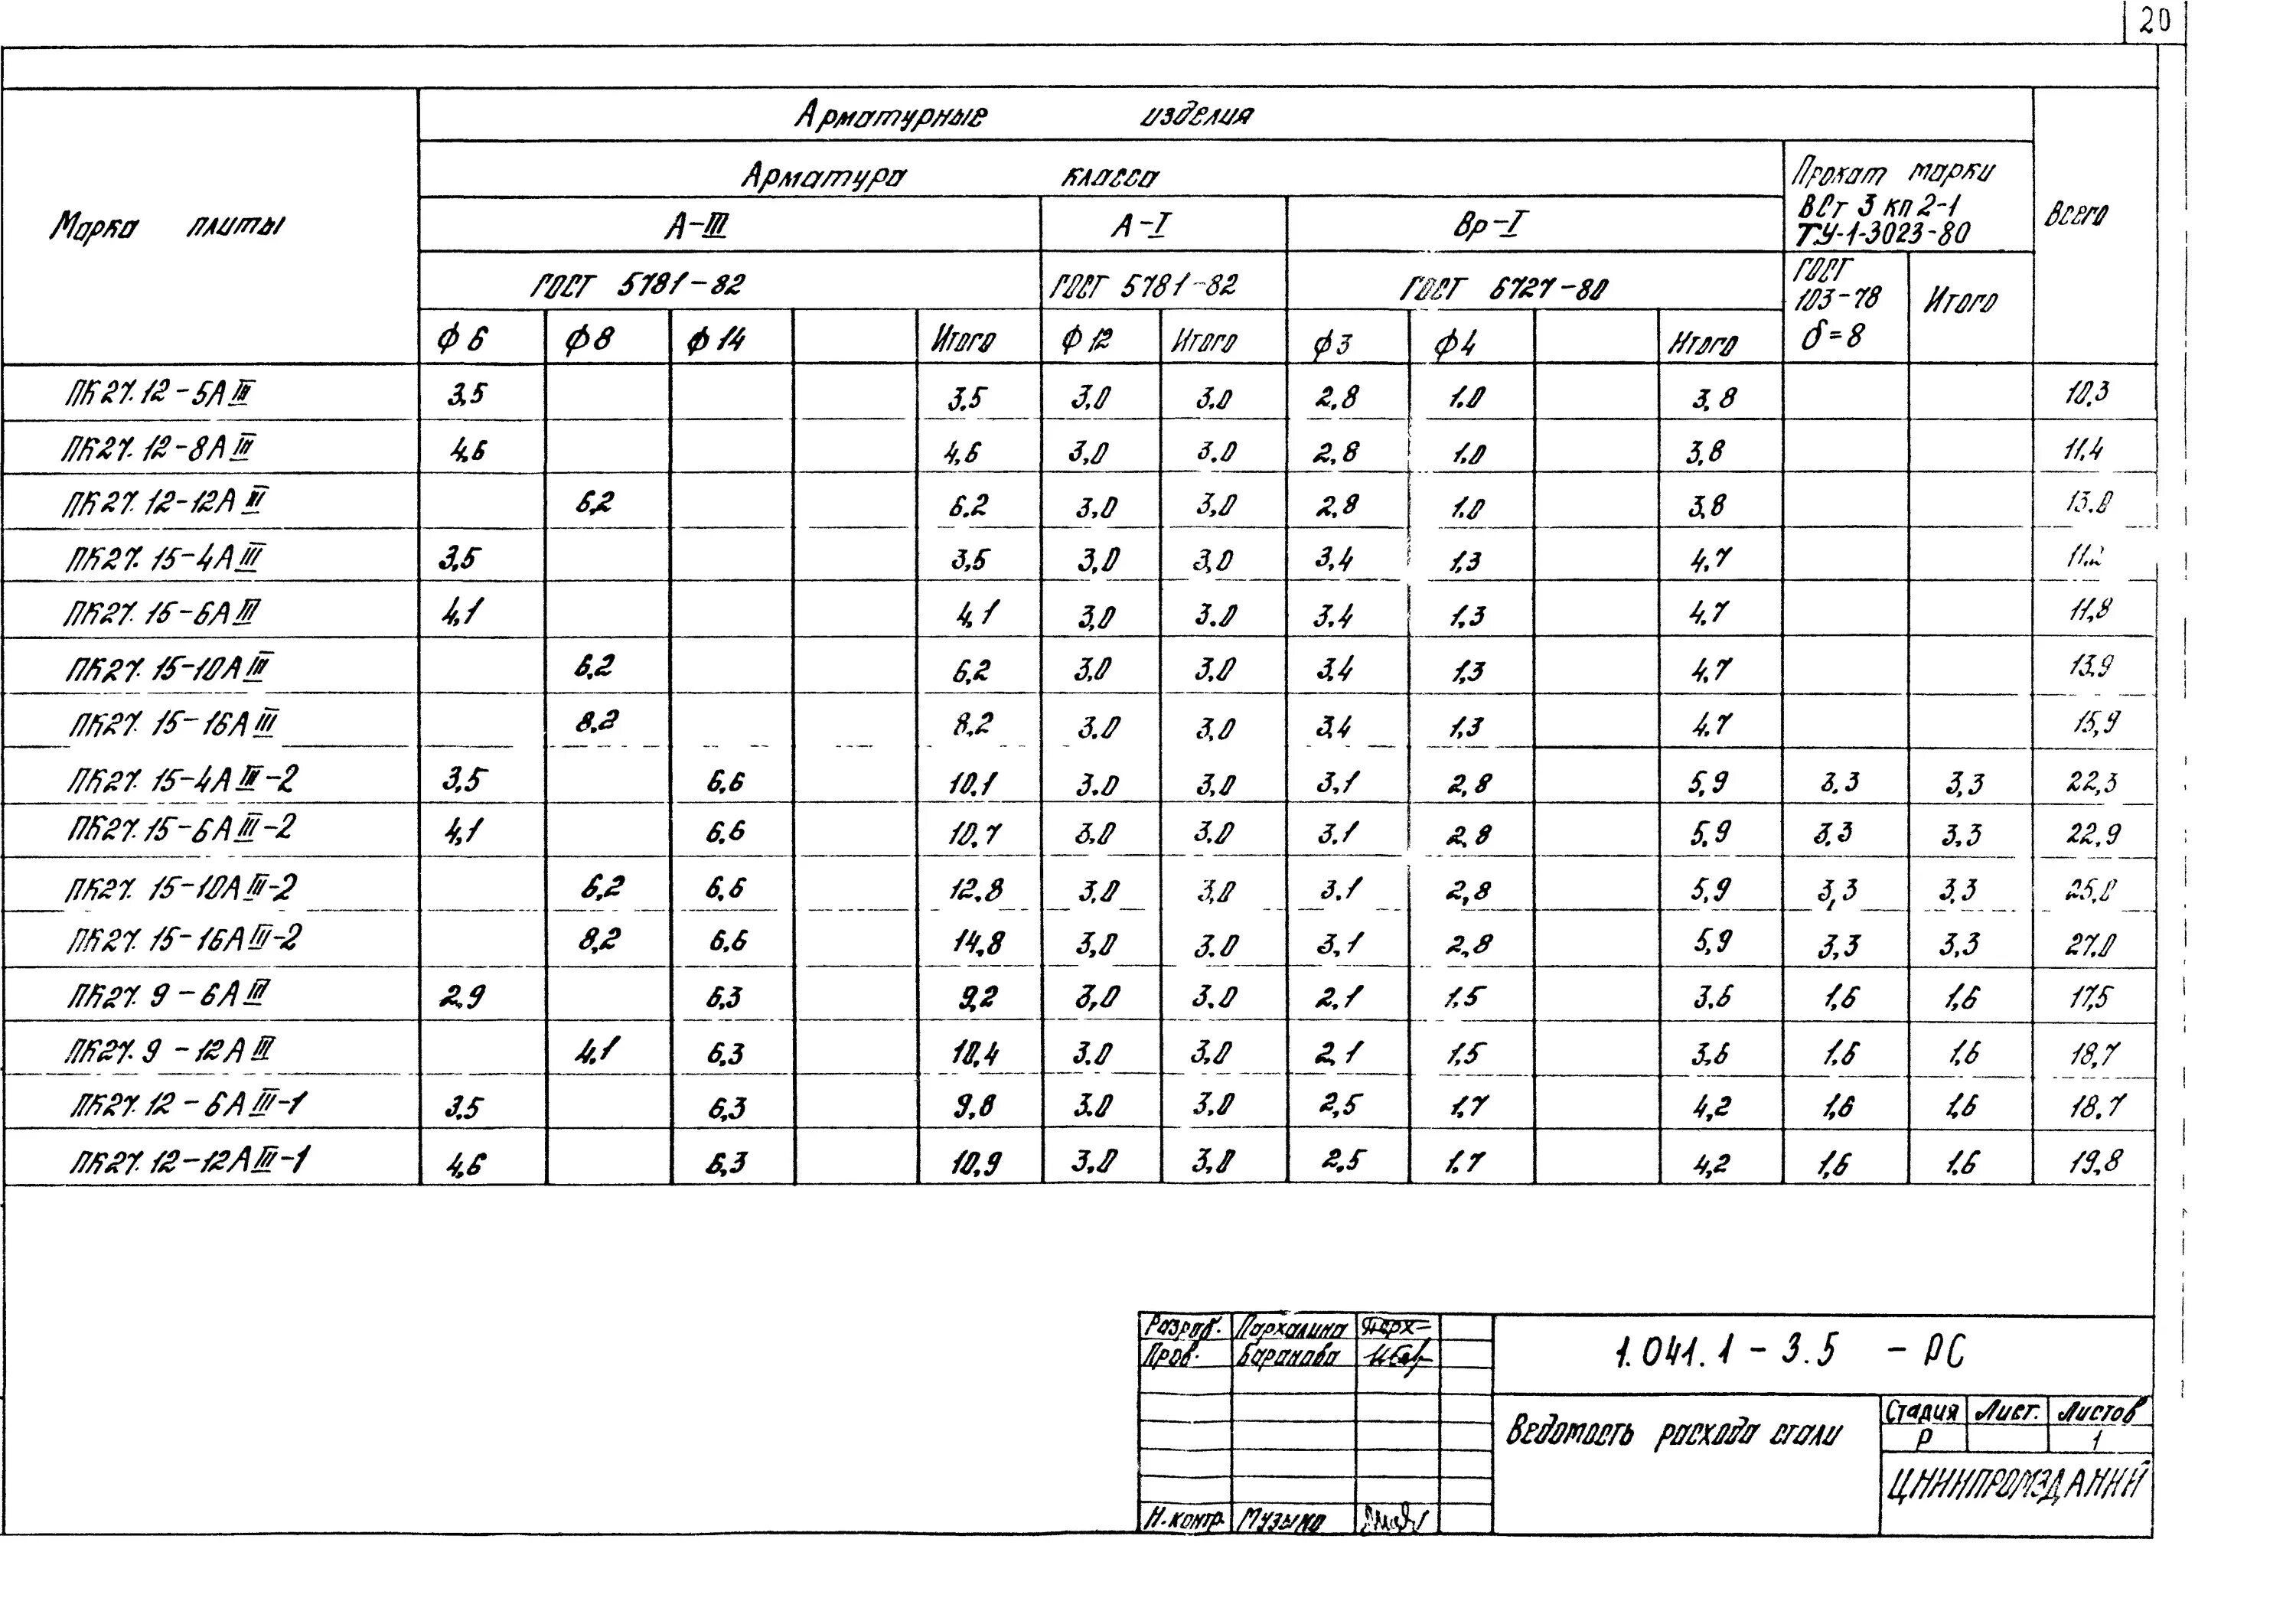 20
Арматурные изделия
Марка плиты
Арматура класса
Прокат марки
ВСт 3 кп 2-1
ТУ-1-3023-80
Всего
А-III А-I Вр-I
ГОСТ 5781-82 ГОСТ 5781-82 ГОСТ 6727-80 ГОСТ 103-78 δ=8 Итого
ф6 ф8 ф14 Итого ф12 Итого ф3 ф4 Итого
ПК27.12-5АIII 3,5 3.5 3.0 3.0 2,8 1.0 3,8 10,3
ПК27.12-8АIII 4,6 4,6 3,0 3.0 2,8 1.0 3,8 11,4
ПК27.12-12АIII 6,2 6.2 3,0 3,0 2,8 1.0 3,8 13.0
ПК27.15-4АIII 3,5 3,5 3,0 3,0 3,4 1,3 4,7 11.2
ПК27.15-6АIII 4,1 4,1 3,0 3.0 3.4 1,3 4,7 11,8
ПК27.15-10АIII 6,2 6,2 3.0 3.0 3,4 1,3 4,7 13,9
ПК27.15-16АIII 8,2 8,2 3.0 3,0 3,4 1,3 4.7 15,9
ПК27.15-4АIII-2 3,5 6.6 10,1 3.0 3,0 3,1 2,8 5,9 3.3 3,3 22,3
ПК27.15-6АIII-2 4,1 6,6 10,7 3,0 3.0 3.1 2,8 5,9 3,3 3,3 22,9
ПК27.15-10АIII-2 6,2 6,6 12,8 3,0 3,0 3.1 2,8 5,9 3,3 3,3 25,0
ПК27.15-16АIII-2 8,2 6,6 14,8 3,0 3.0 3,1 2,8 5,9 3,3 3,3 27.0
ПК27.9-6АIII 2,9 6,3 9,2 3,0 3.0 2,1 1.5 3.6 1,6 1,6 17,5
ПК27.9-12АIII 4,1 6,3 10,4 3.0 3,0 2,1 1,5 3,6 1.6 1,6 18,7
ПК27.12-6АIII-1 3.5 6,3 9,8 3.0 3.0 2,5 1,7 4,2 1,6 1,6 18.7
ПК27.12-12АIII-1 4,6 6,3 10,9 3.0 3,0 2,5 1.7 4,2 1,6 1.6 19,8
Разраб. Пархалина Парх-
Пров. Баранова
1.041.1-3.5 -РС
Ведомость расхода стали
Стадия Лист. Листов
Р 1
ЦНИИПРОМЗДАНИЙ
Н.контр. Музыко